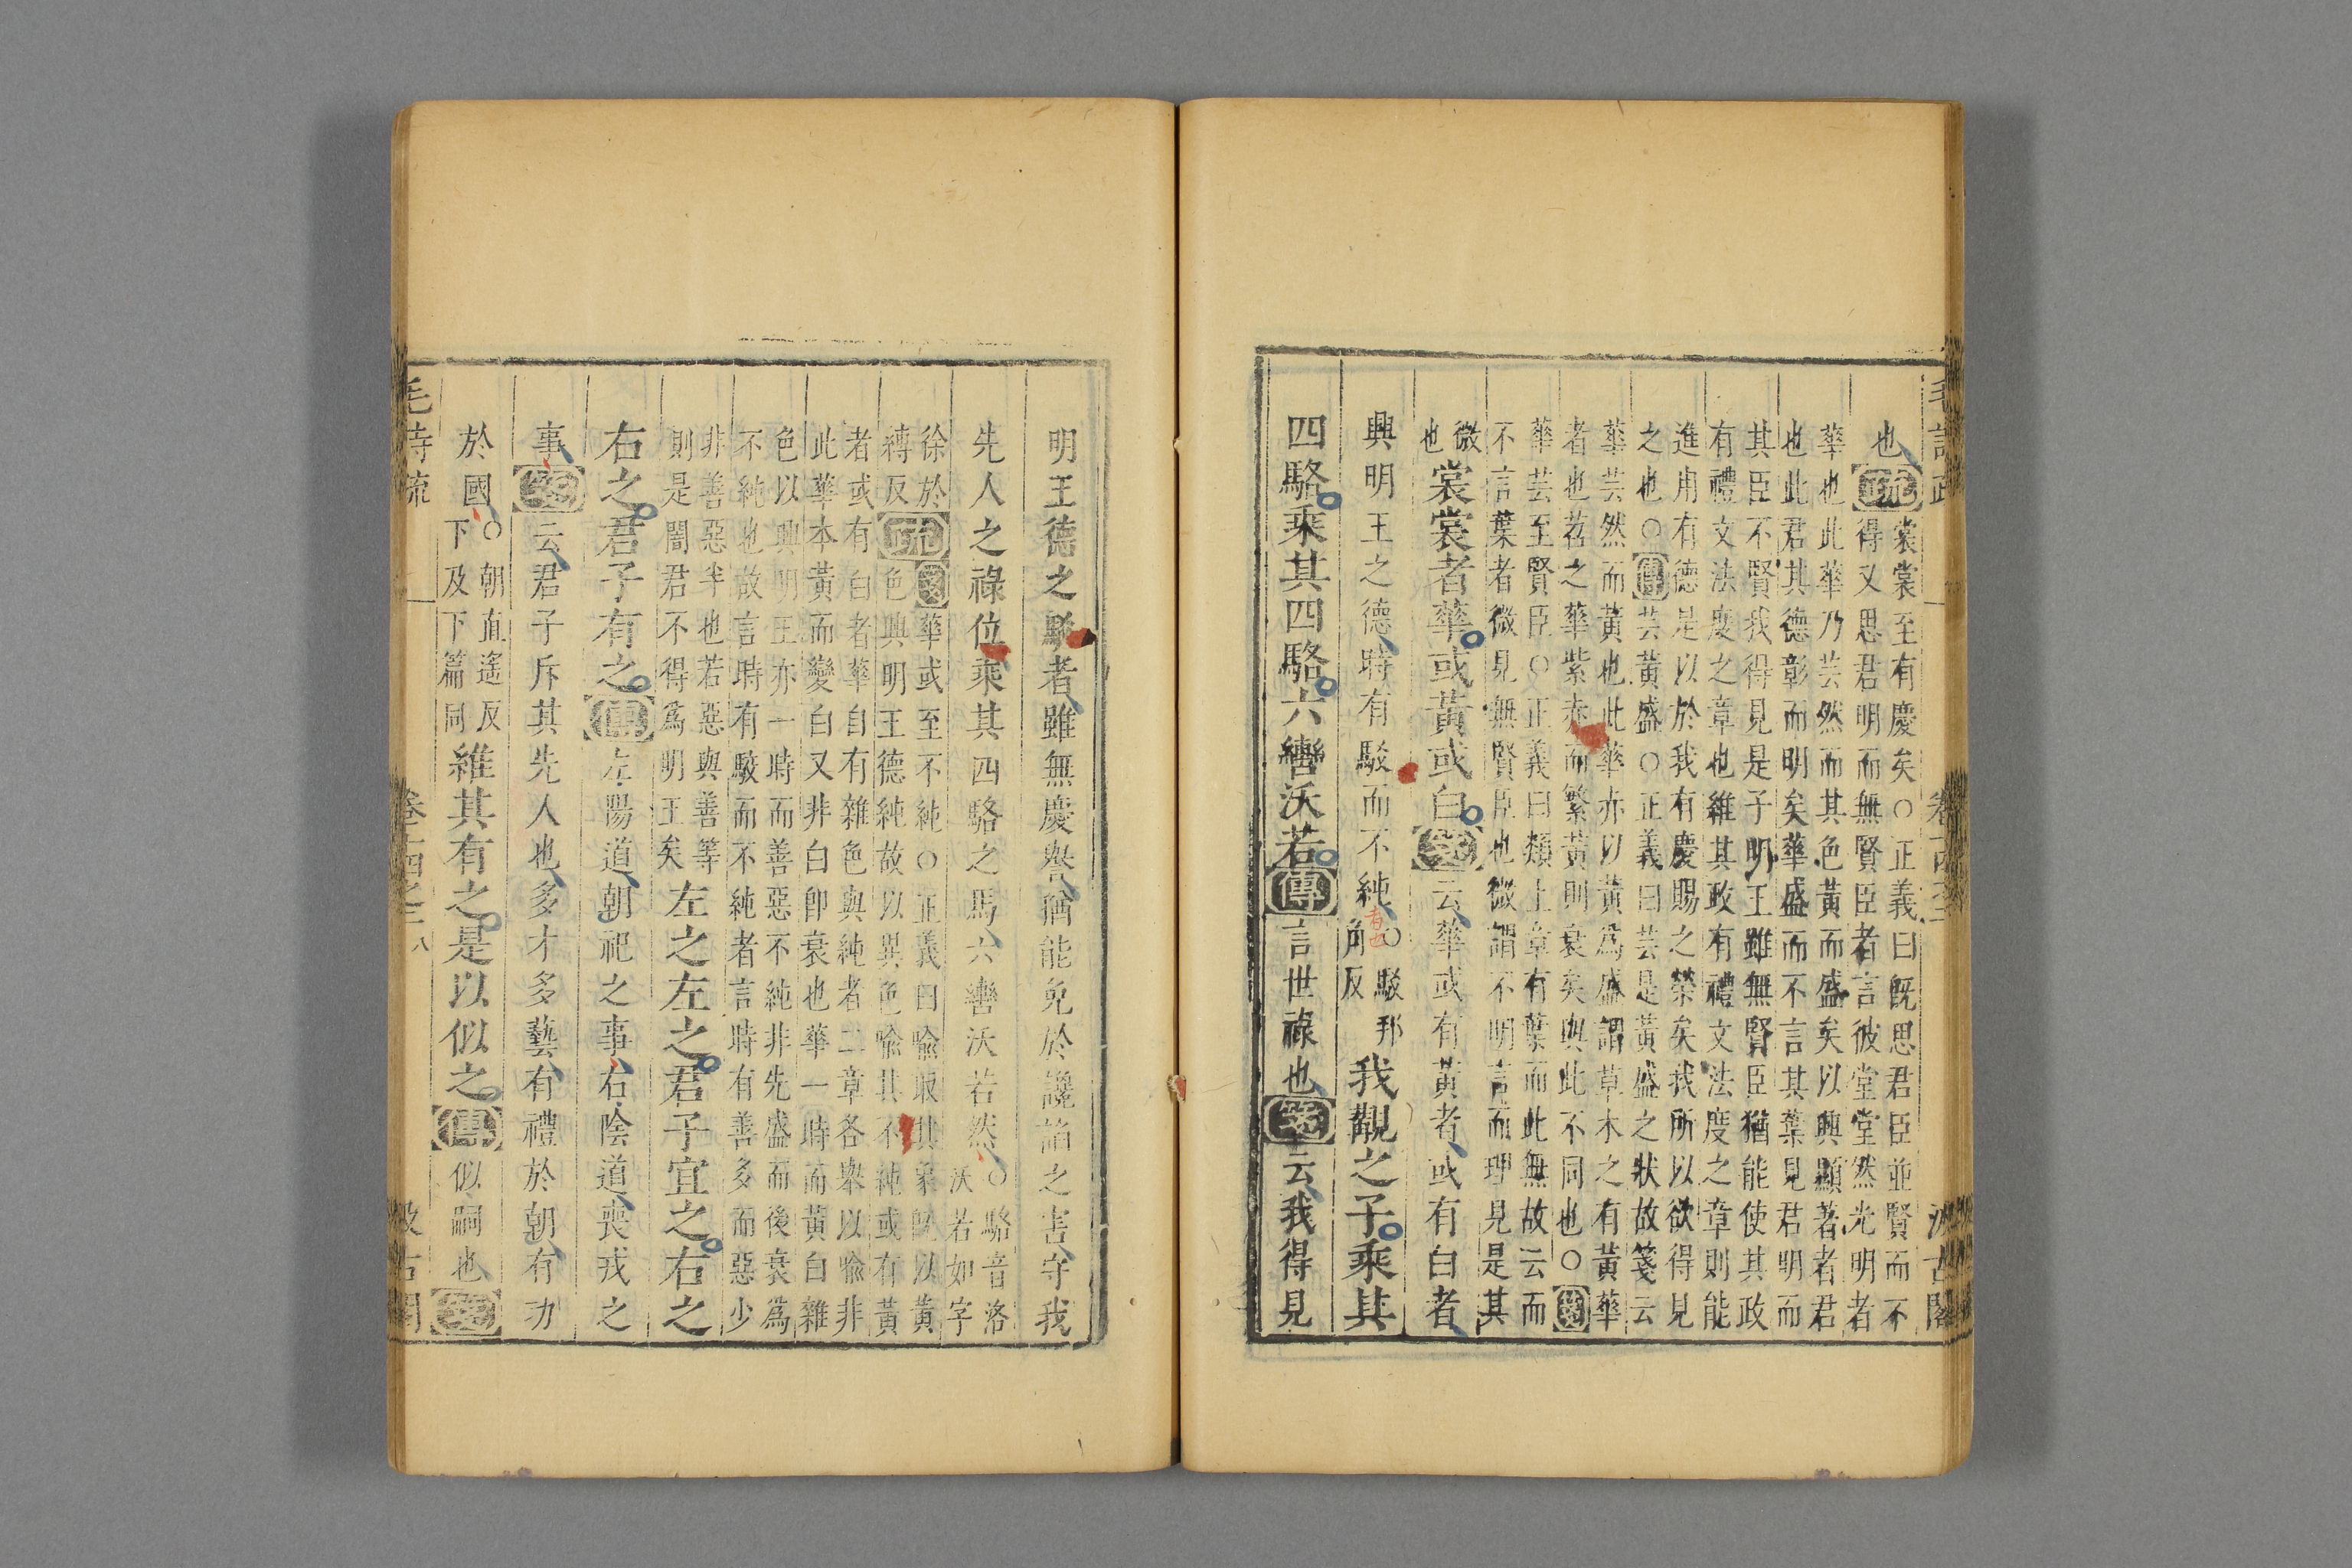 毛詩疏 卷十四之二 汲古閣
也疏裳裳至有慶矣○正義曰旣思君臣並賢而不
得又思君明而無賢臣者言彼堂堂然光明者
華也此華乃芸然而其色黃而盛矣以興顯著者君
也此君其德彰而明矣華盛而不言其葉見君明而
其臣不賢我得見是子明王雖無賢臣猶能使其政
有禮文法度之章也維其政有禮文法度之章則能
進用有德是以於我有慶賜之榮矣我所以欲得見
之也○傳芸黃盛○正義曰芸是黃盛之狀故箋云
華芸然而黃也此華亦以黃爲盛謂草木之有黃華
者也苕之華紫赤而繁黃則衰矣與此不同也○箋
華芸至賢臣○正義曰類上章有葉而此無故云而
不言葉者微見無賢臣也微謂不明言而理見是其
微
也
裳裳者華或黃或白箋云華或有黃者或有白者
興明王之德時有駁而不純○駁邦
角反
我覯之子乘其
者也
四駱乘其四駱六轡沃若傳言世祿也箋云我得見
明王德之駁者雖無慶譽猶能免於讒諂之害守我
先人之祿位乘其四駱之馬六轡沃若然○駱音洛
沃若如字
徐於
縛反
疏箋華或至不純○正義曰喻取其象旣以黃
色興明王德純故以異色喻其不純或有黃
者或有白者華自有雜色與純者二章各舉以喻非
此華本黃而變白又非白卽衰也華一時而黃白雜
色以興明王亦一時而善惡不純非先盛而後衰爲
不純也故言時有駁而不純者言時有善多而惡少
非善惡半也若惡與善等
則是闇君不得爲明王矣
左之左之君子宜之右之
右之君子有之傳左陽道朝祀之事右陰道喪戎之
事箋云君子斥其先人也多才多藝有禮於朝有功
於國○朝直遙反
下及下篇同
維其有之是以似之傳似嗣也箋
毛詩疏 卷十四之二 八 汲古閣